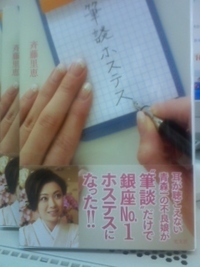 斉藤里恵
筆談ホステス
耳が聴こえない
青森一の不良娘が
筆談だけで
銀座No.1
ホステスに
なった!!